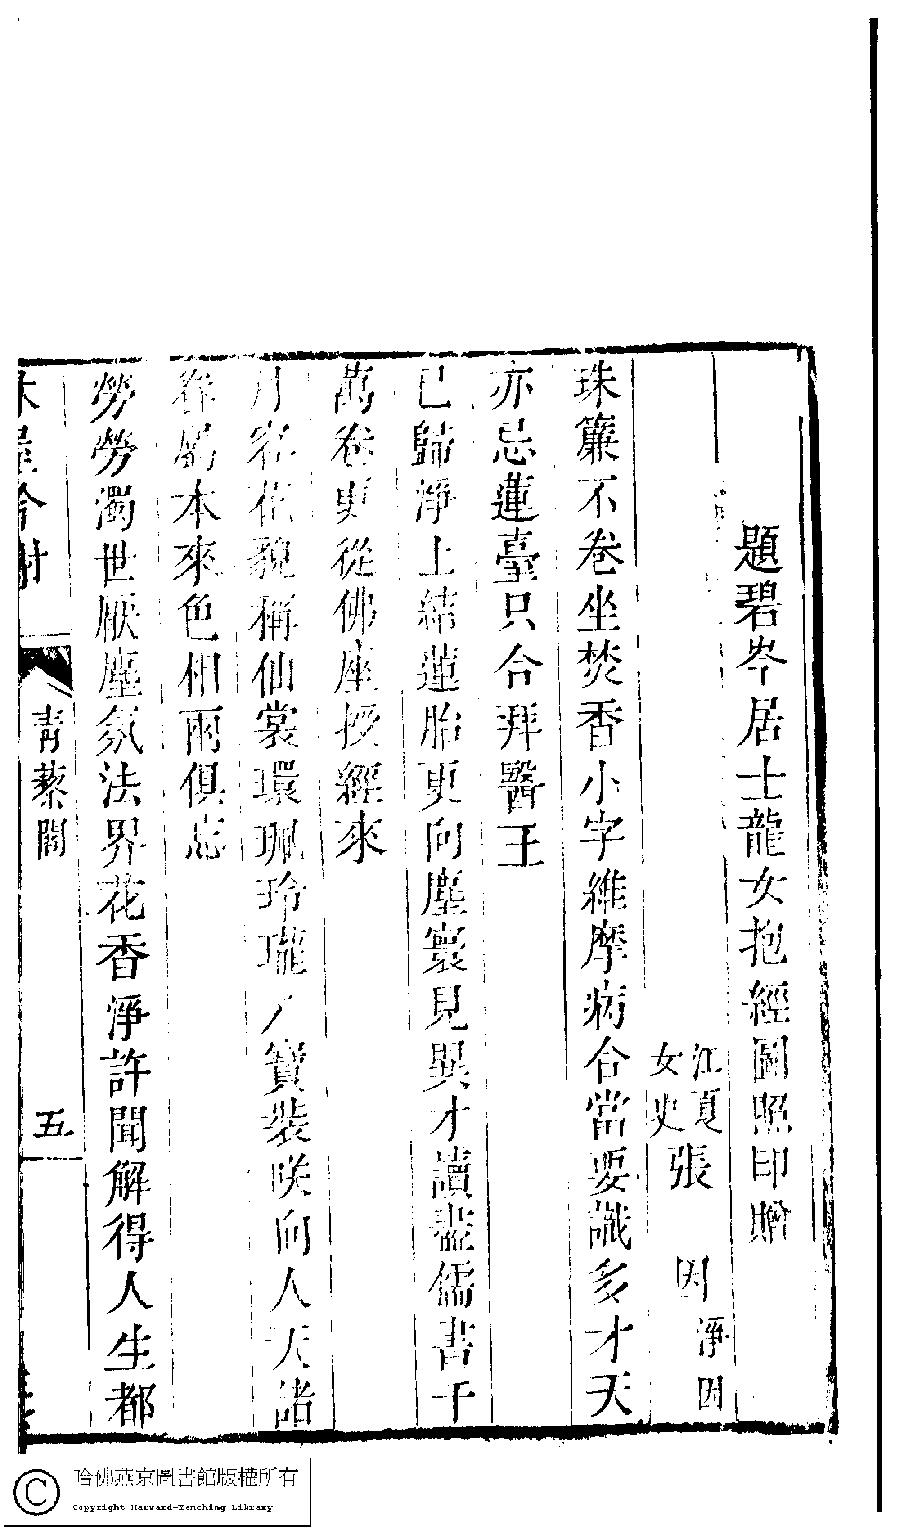 題碧岑居士龍女抱經圖照印贈
江夏女史張 因淨因
珠簾不卷坐焚香小字維摩病合當要識多才天
亦忌蓮臺只合拜醫王
已歸淨土結蓮胎更向塵寰見異才讀盡儒書千
萬卷更從佛座授經來
月容花貌稱仙裳環珮玲瓏八寶裝咲向人天諸
眷屬本來色相兩俱忘
勞勞濁世厭塵氛法界花香淨許聞解得人生都
青藜閣
五
哈佛燕京圖書館版權所有
Copyright Harvard-Yenching Library